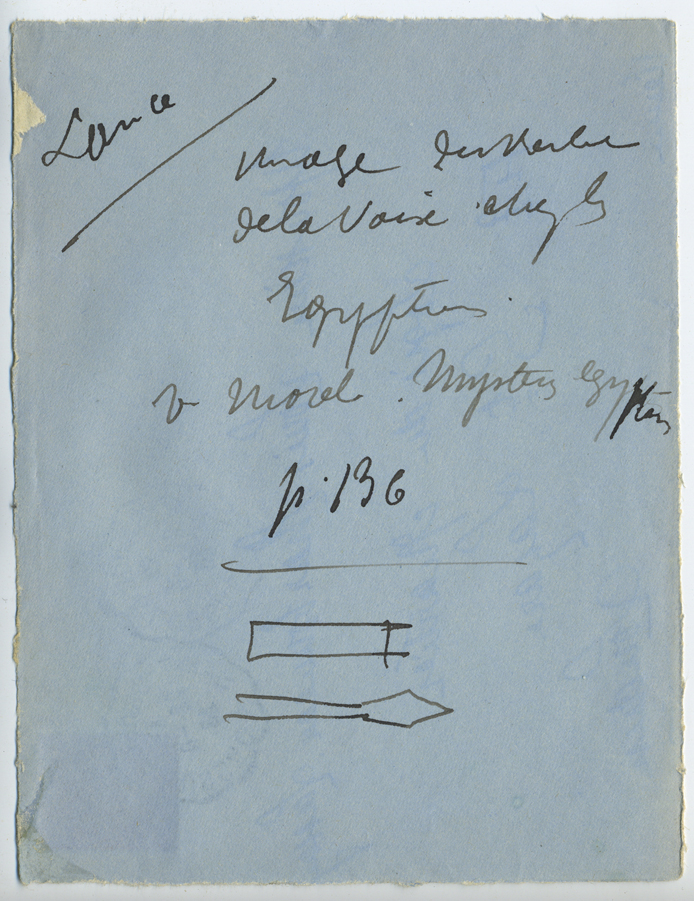 Lance
Image du Verbe
de la Voix chez les
Egyptiens.
v Moret. Mystères Egyptiens
p. 136